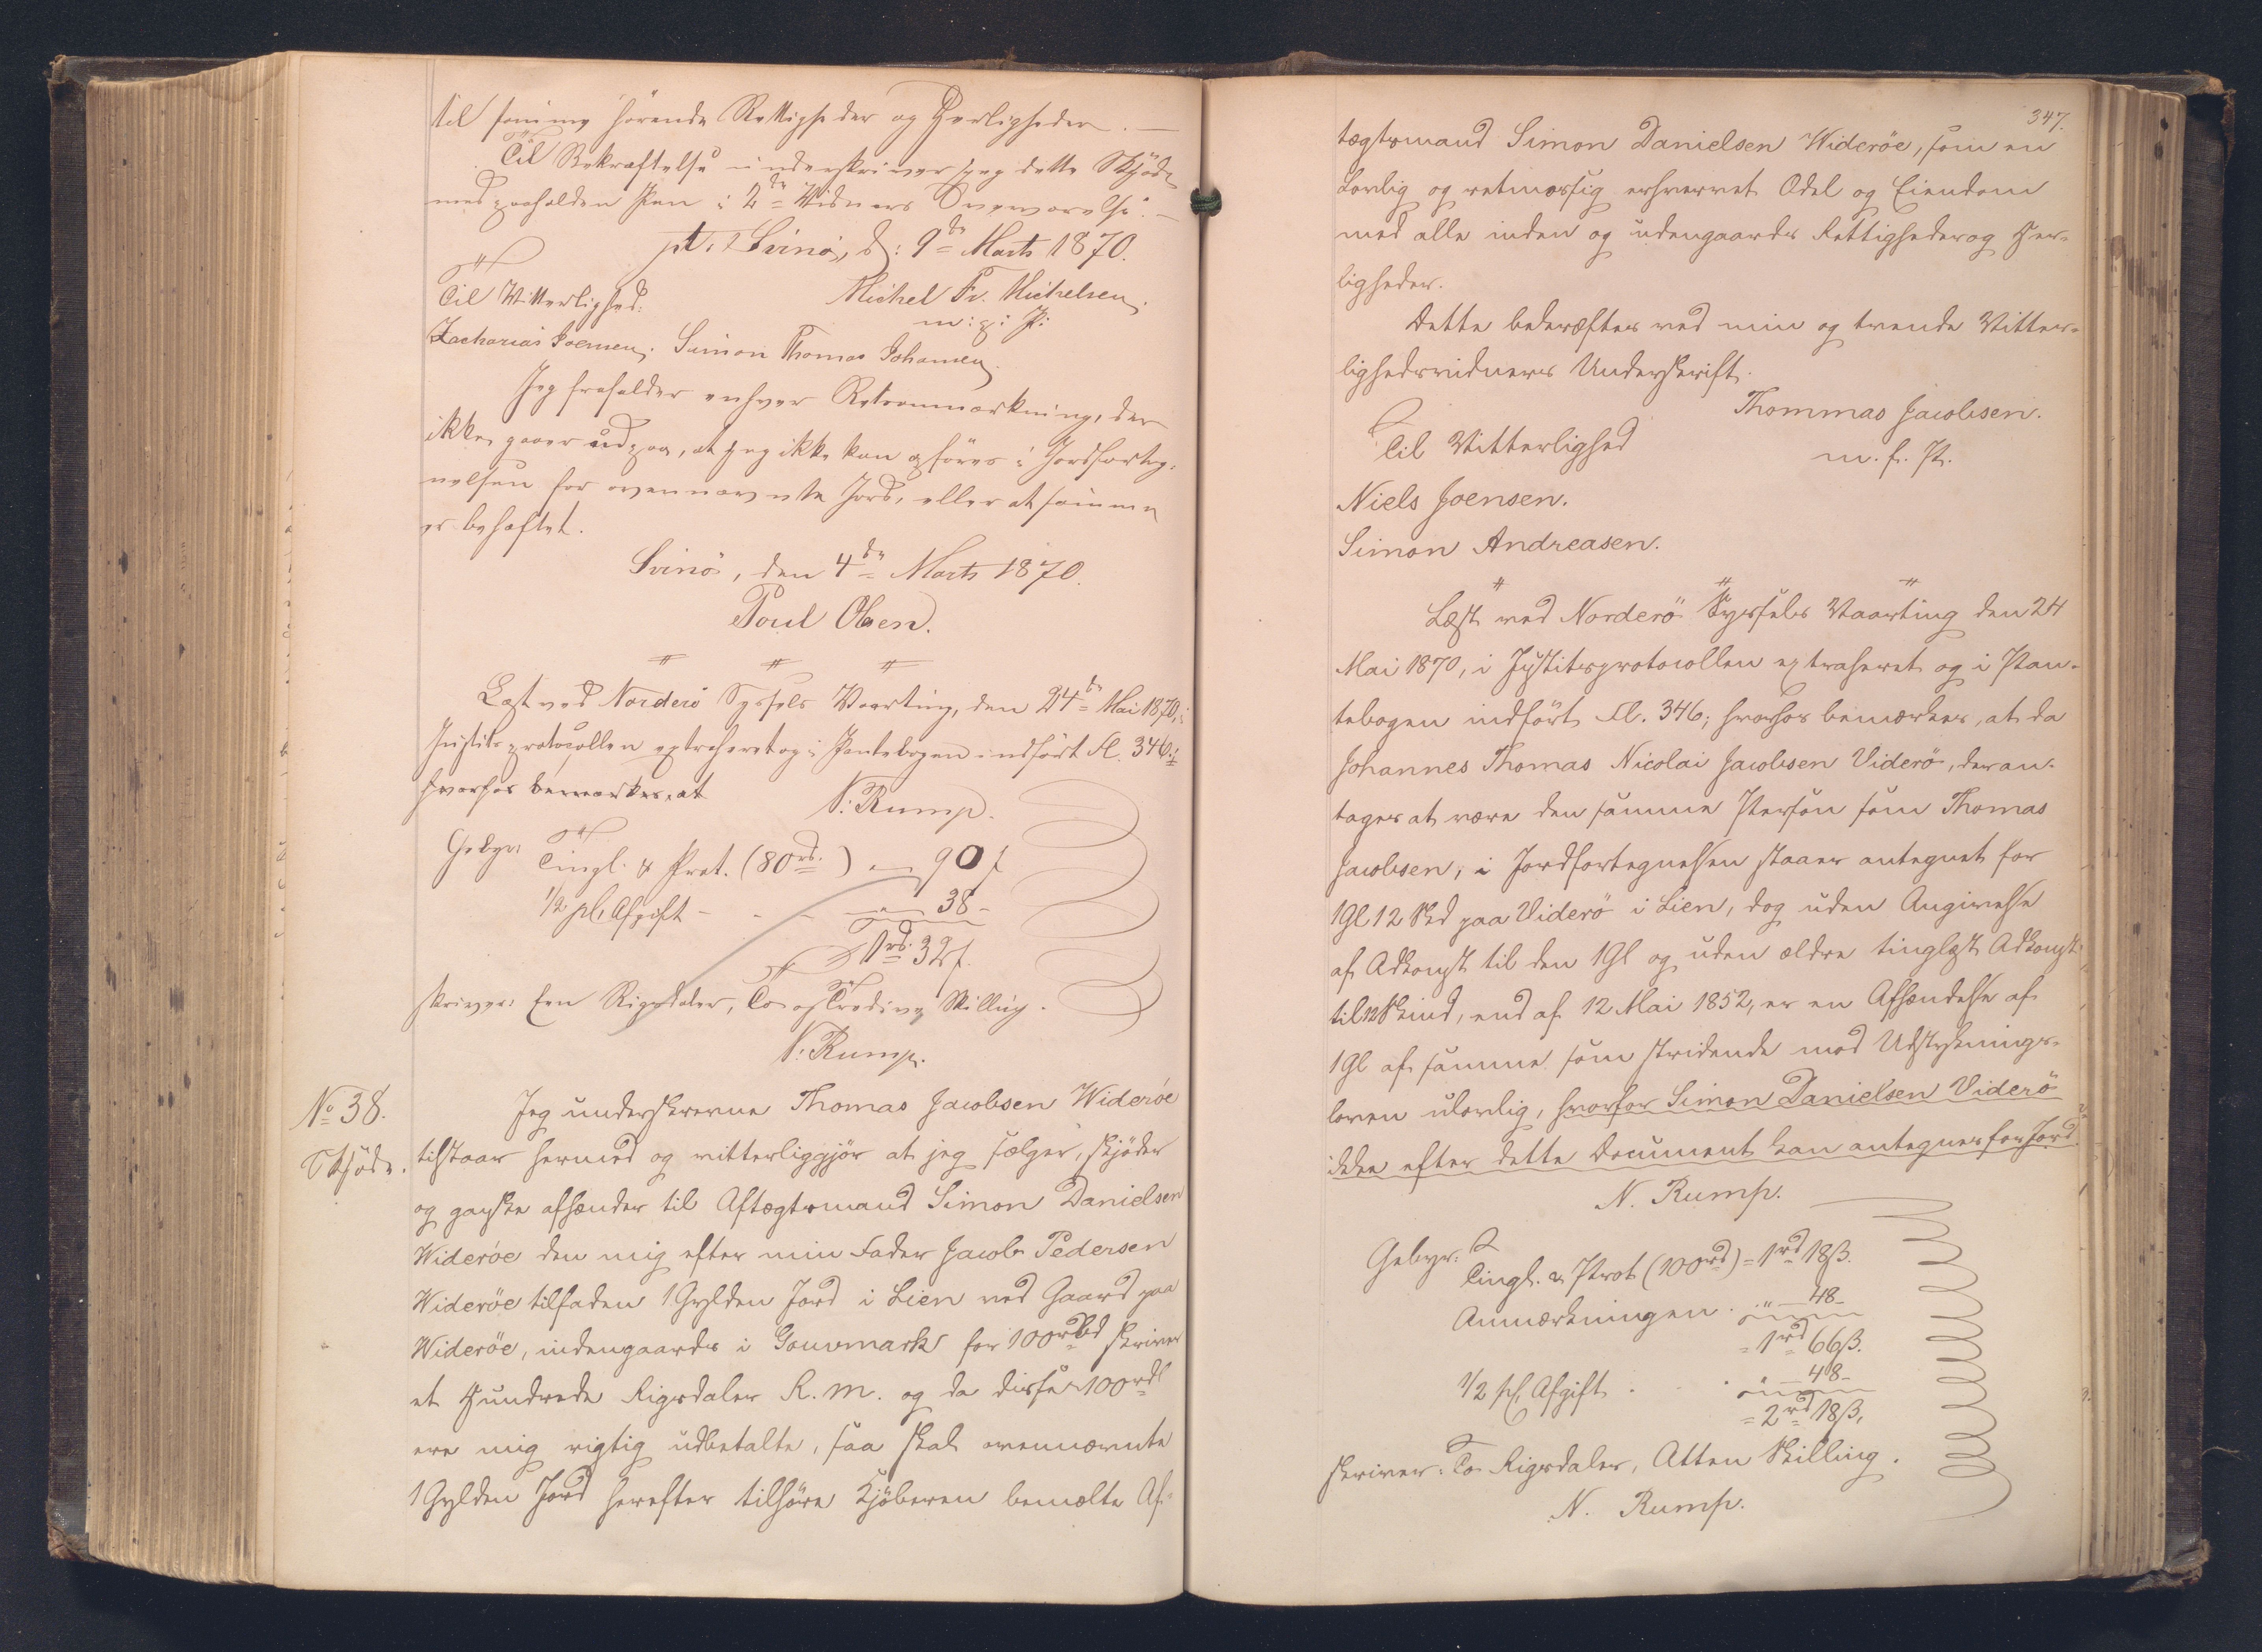 til samme hörende Rettigheder og Herligheder. —
Til Bekræftelse underskriver jeg dette Skjöde
med paaholden Pen i 2de Vidners Overværelse. —
pt. Svinö, d: 9de Marts 1870.
Til Vitterlighed: Michel Fr. Michelsen.
m: p: P:
Zacharias Joensen. Simon Thomas Johansen.
Jeg frafalder enhver Retsanmærkning, der
ikke gaaer ud paa, at jeg ikke kan opföres i Jordforteg-
nelsen for ovennævnte Jord, eller at samme
er behæftet.
Svinö, den 4de Marts 1870.
Poul Olsen.
Læst ved Norderö Syssels Vaarting, den 24de Mai 1870, i
Justitsprotocollen extraheret og i Pantebogen indfört Fl. 346.;
hvorhos bemærkes, at
N: Rump.
Gebyr: Tingl. & Prot. (80rd.) — 90 ß
1/2 pCt. Afgift - - - — 38 -
1rd. 32 ß.
skriver: Een Rigsdaler, To og Tredive Skilling.
N: Rump.
No 38. Jeg underskrevne Thomas Jacobsen Wideröe
Skjöde. tilstaar hermed og vitterliggjör at jeg sælger, skjöder
og ganske afhænder til Aftægtsmand Simon Danielsen
Wideröe den mig efter min Fader Jacob Pedersen
Wideröe tilfaldne 1 Gylden Jord i Lien ved Gaard paa
Wideröe, indengaards i Gouvmark for 100rbd skriver
et Hundrede Rigsdaler R. M. og da disse 100rdl
ere mig rigtig udbetalte, saa skal ovennævnte
1 Gylden Jord herefter tilhöre Kjöberen bemælte Af-
347.
tægtsmand Simon Danielsen Wideröe, som en
Lovlig og retmæssig erhvervet Odel og Eiendom
med alle inden og udengaards Rettigheder og Her-
ligheder.
Dette bekræftes ved min og tvende Vitter-
lighedsvidners Underskrift.
Thommas Jacobsen.
Til Vitterlighed m. f. P.
Niels Joensen.
Simon Andreasen.
Læst ved Norderö Syssels Vaarting den 24
Mai 1870, i Justitsprotocollen extraheret og i Pan-
tebogen indfört Fl. 346; hvorhos bemærkes, at da
Johannes Thomas Nicolai Jacobsen Viderö, der an-
tages at være den samme Person som Thomas
Jacobsen, i Jordfortegnelsen staaer antegnet for
1 Gl 12 Skd paa Viderö i Lien, dog uden Angivelse
af Adkomst til den 1 Gl og uden ældre tinglæst Adkomst
til 12 Skind, end af 12 Mai 1852, er en Afhændelse af
1 Gl af samme som stridende mod Udstyknings-
loven ulovlig, hvorfor Simon Danielsen Viderö
ikke efter dette Document kan antegnes for Jord.
N. Rump.
Gebyr: Tingl. & Prot (100rd) = 1rd 18 ß.
Anmærkningen . .. — 48 -
= 1rd 66 ß.
1/2 pCt. Afgift . . " — 48 -
= 2rd 18 ß.
skriver: To Rigsdaler, Atten Skilling.
N. Rump.